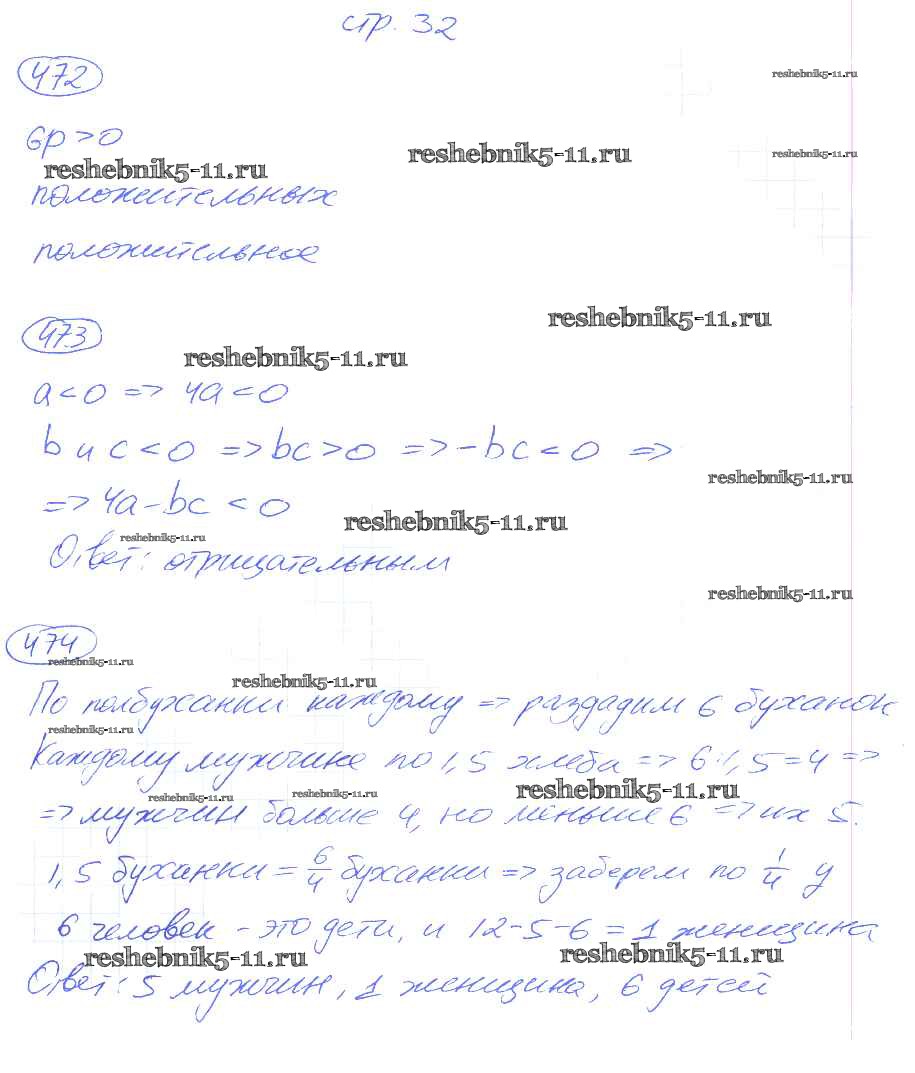 стр. 32
472
reshebnik5-11.ru
6p > 0
reshebnik5-11.ru
reshebnik5-11.ru
reshebnik5-11.ru
положительных
положительное
473
reshebnik5-11.ru
reshebnik5-11.ru
a < 0 => 4a < 0
b и c < 0 => bc > 0 => -bc < 0 =>
reshebnik5-11.ru
=> 4a - bc < 0
reshebnik5-11.ru
reshebnik5-11.ru
Ответ: отрицательным
reshebnik5-11.ru
474
reshebnik5-11.ru
reshebnik5-11.ru
По полбуханки каждому => раздадим 6 буханок
reshebnik5-11.ru
Каждому мужчине по 1,5 хлеба => 6:1,5=4 =>
reshebnik5-11.ru
reshebnik5-11.ru
reshebnik5-11.ru
=> мужчин больше 4, но меньше 6 => их 5.
1,5 буханки = 6/4 буханки => заберем по 1/4 у
6 человек - это дети, и 12-5-6 = 1 женщина
reshebnik5-11.ru
reshebnik5-11.ru
Ответ: 5 мужчин, 1 женщина, 6 детей